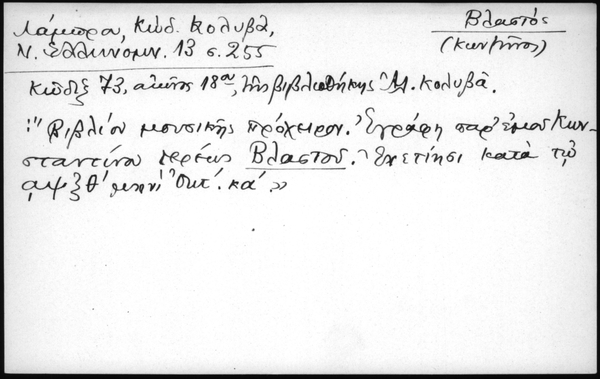 Λάμπρου, Κώδ. Κολυβᾶ,
Ν. Ἑλληνομν. 13 σ. 255
Βλαστός
(Κων/τῖνος)
Κῶδιξ 73, αἰῶνος 18ου, τῆς βιβλιοθήκης Ἀλ. Κολυβᾶ.
:"Βιβλίον μουσικῆς πρόχειρον. Ἐγράφη παρ' ἐμοῦ Κων-
σταντίνου ἱερέως Βλαστοῦ. Ἐνετίησι κατὰ τῷ
αψξθ' μηνὶ Ὀκτ. κα'.»